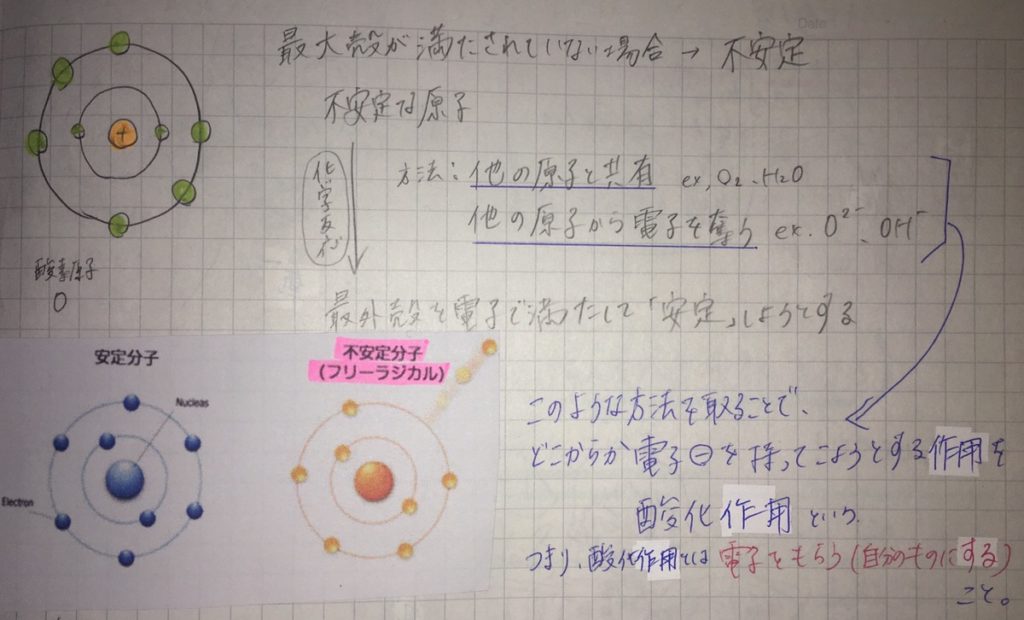 Date
最大殻が満たされていない場合 → 不安定
不安定な原子
化学反応
方法: 他の原子と共有 ex, O₂、H₂O
他の原子から電子を奪う ex. O²⁻、OH⁻
酸素原子
O
最外殻を電子で満たして「安定」しようとする
安定分子
Nucleas
Electron
不安定分子
(フリーラジカル)
このような方法を取ることで、
どこからか電子⊖を持ってこようとする作用を
酸化作用という
つまり、酸化作用とは電子をもらう(自分のものにする)
こと。